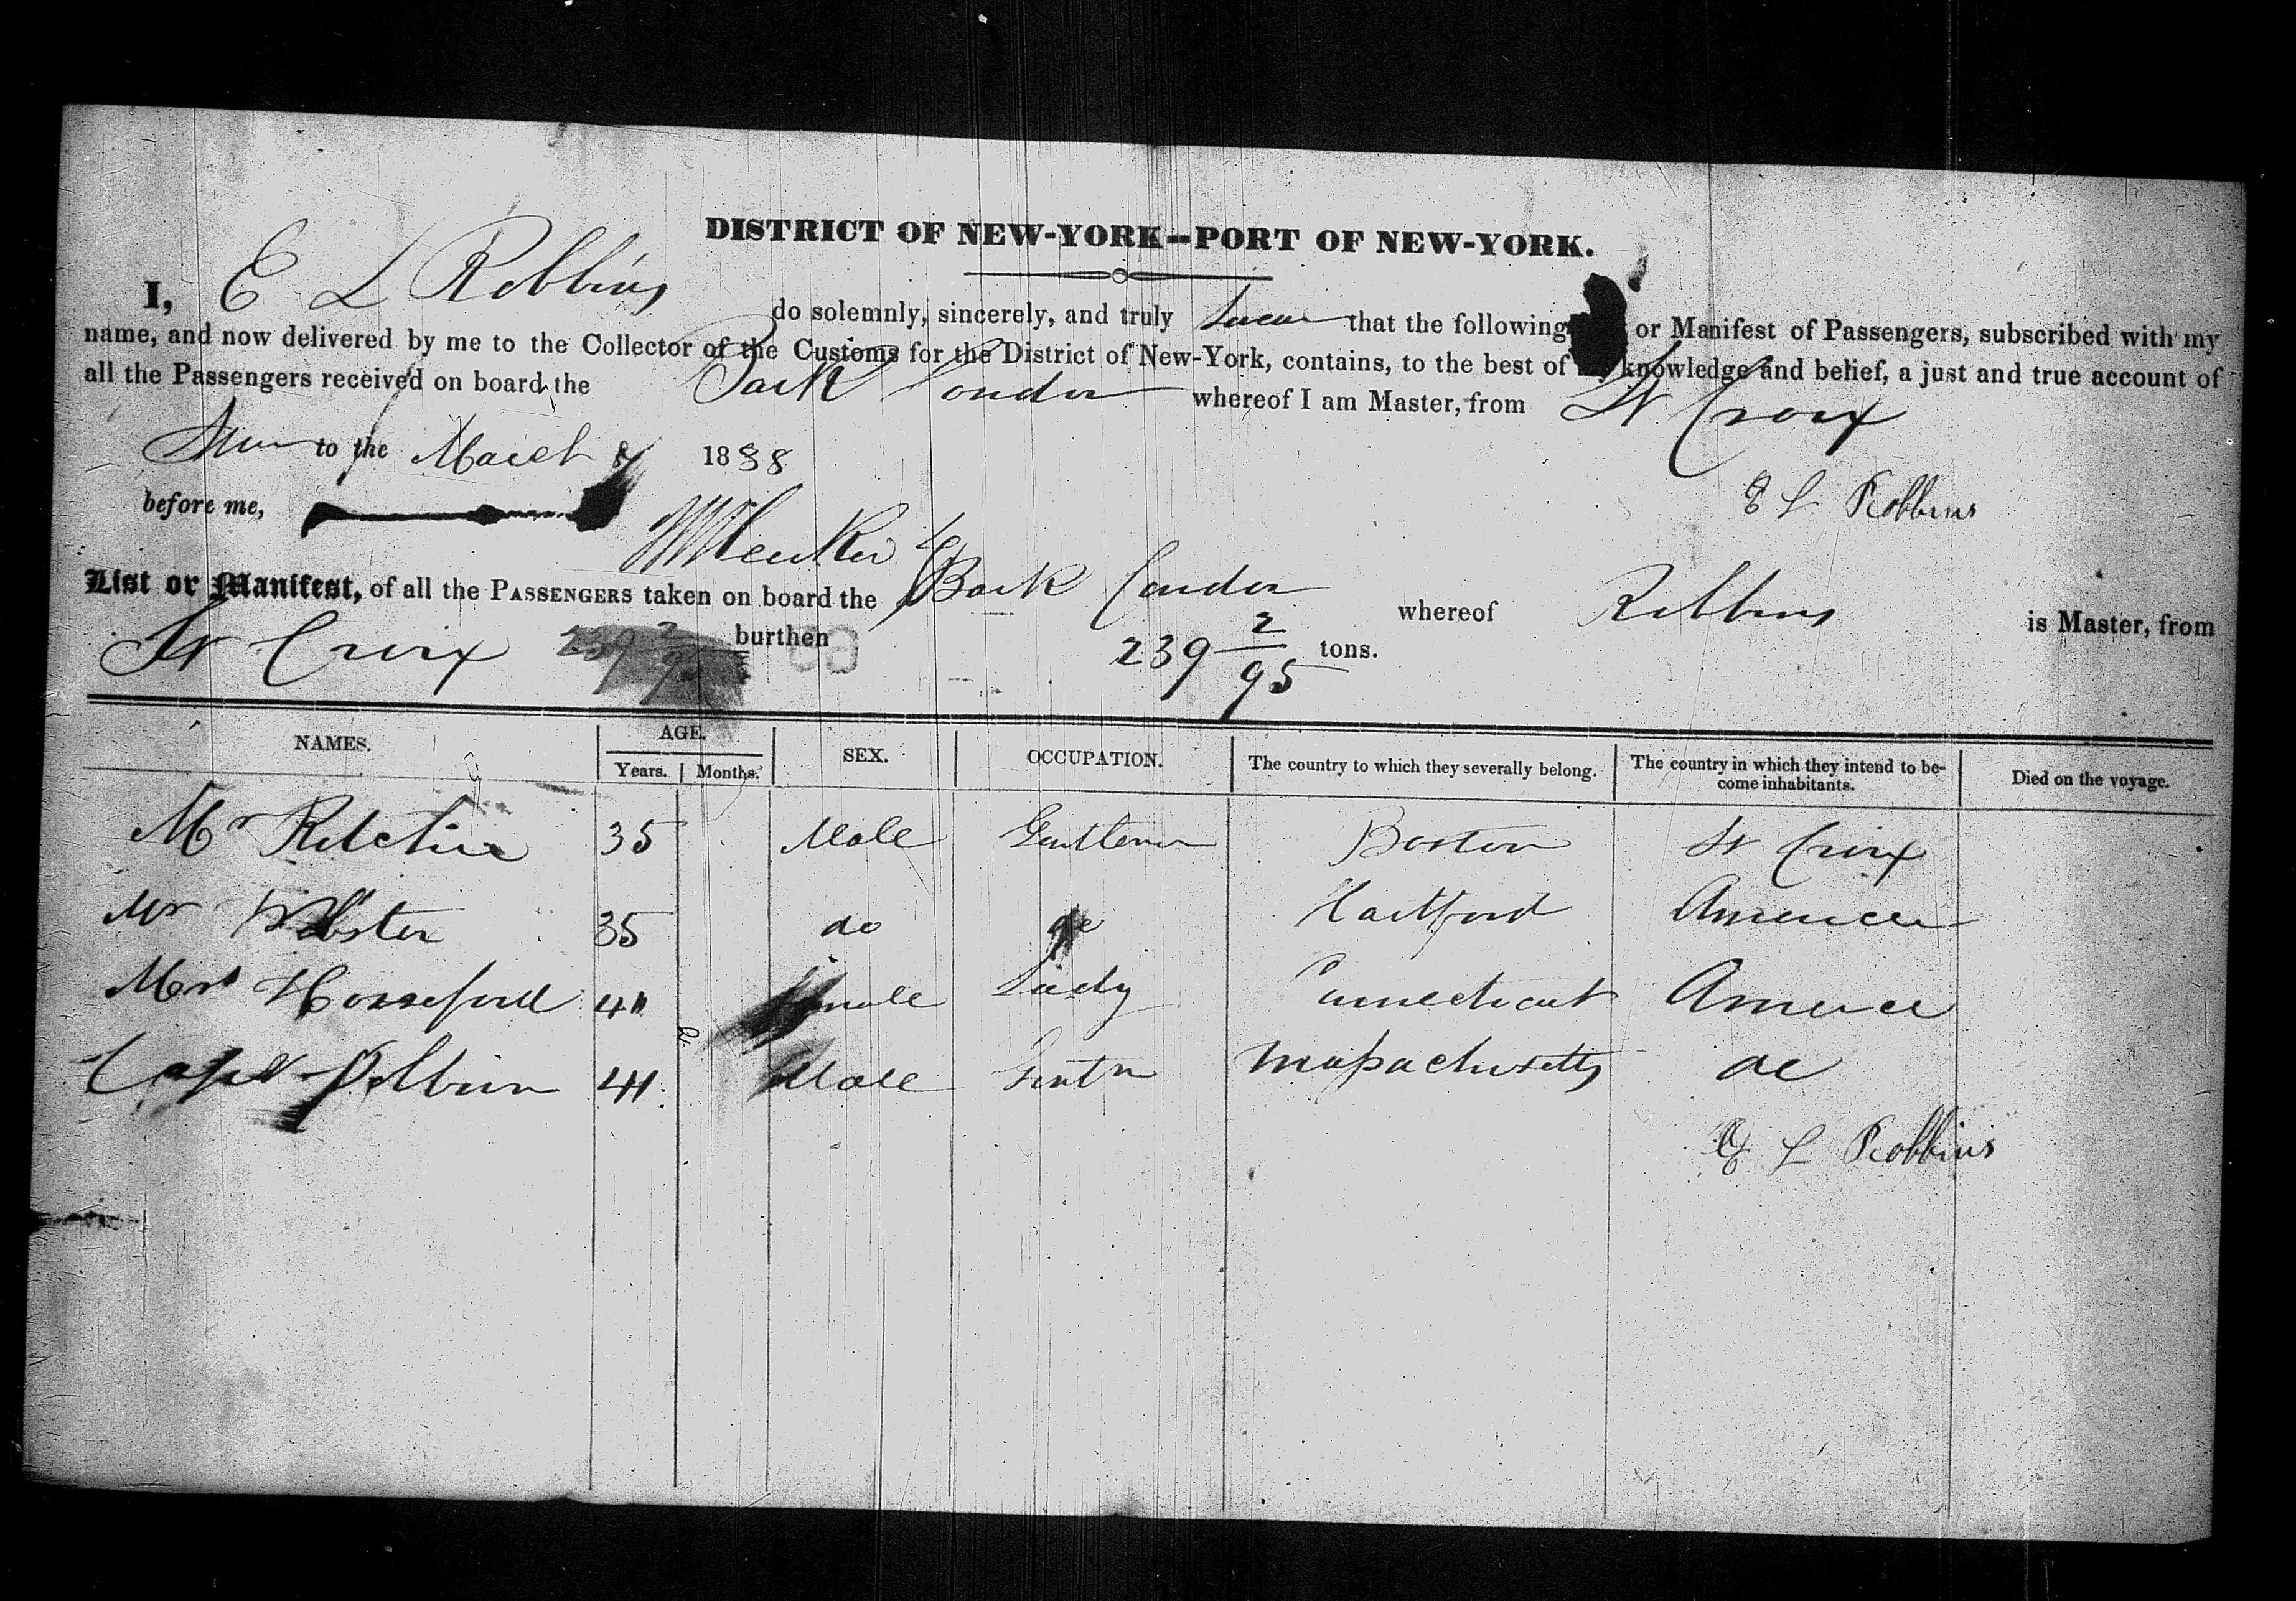 DISTRICT OF NEW-YORK--PORT OF NEW-YORK.
I, E L Robbins do solemnly, sincerely, and truly Swear that the following or Manifest of Passengers, subscribed with my
name, and now delivered by me to the Collector of the Customs for the District of New-York, contains, to the best of my knowledge and belief, a just and true account of
all the Passengers received on board the Bark Condor whereof I am Master, from St Croix
to the March 1838
before me, E L Robbins
List or Manifest, of all the PASSENGERS taken on board the Bark Condor whereof Robbins is Master, from
St Croix burthen 239 2/95 tons.
NAMES. AGE. SEX. OCCUPATION. The country to which they severally belong. The country in which they intend to be- Died on the voyage.
Years. Months. come inhabitants.
Mr Ritchie 35 Male Gentleman Boston St Croix
Mr Webster 35 do do Hartford America
Mrs Horseford 41 Female Lady Connecticut America
Capt 41 Male Gentn Massachusetts do
E L Robbins